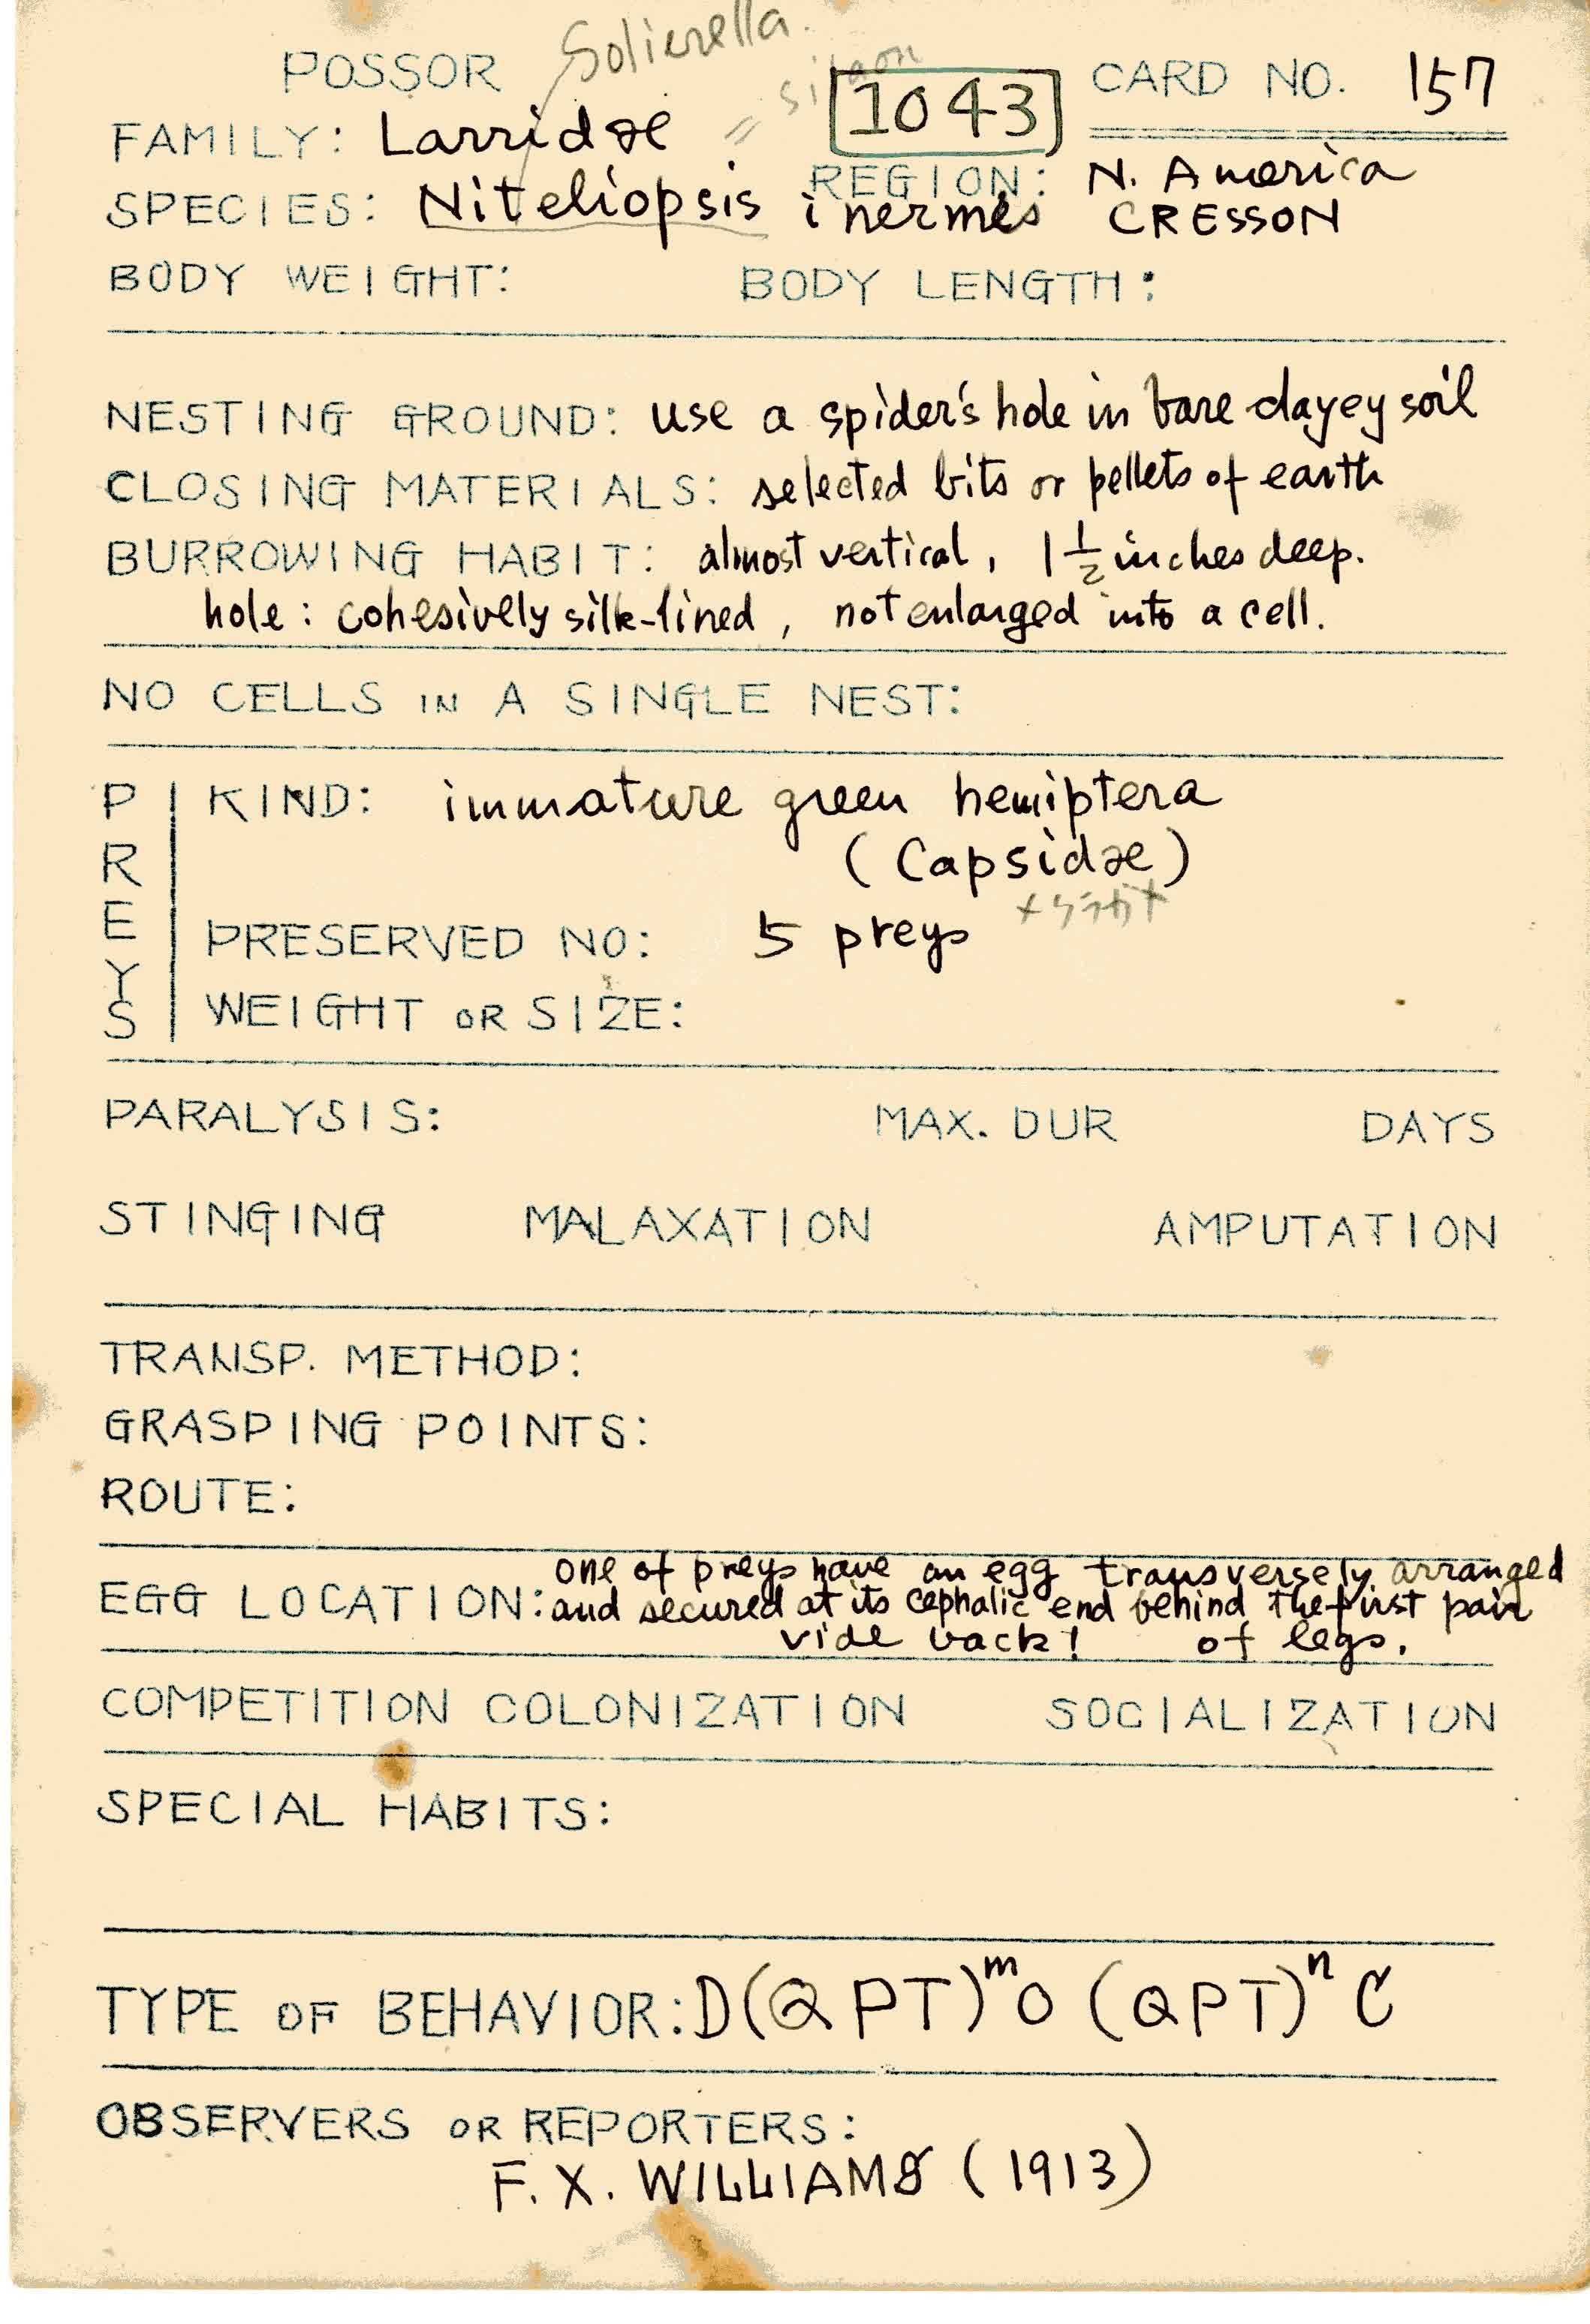 Solierella.
POSSOR
= silaon
1043
CARD NO. 157
FAMILY: Larridae
REGION: N. America
SPECIES: Niteliopsis inermis CRESSON
BODY WEIGHT: BODY LENGTH:
NESTING GROUND: use a spider's hole in bare clayey soil
CLOSING MATERIALS: selected bits or pellets of earth
BURROWING HABIT: almost vertical, 1 1/2 inches deep.
hole: cohesively silk-lined, not enlarged into a cell.
NO CELLS IN A SINGLE NEST:
PREYS
KIND: immature green hemiptera
(Capsidae)
メクラガメ
PRESERVED NO: 5 preys
WEIGHT OR SIZE:
PARALYSIS: MAX. DUR DAYS
STINGING MALAXATION AMPUTATION
TRANSP. METHOD:
GRASPING POINTS:
ROUTE:
EGG LOCATION: one of preys have an egg transversely arranged
and secured at its cephalic end behind the first pair
vide back! of legs.
COMPETITION COLONIZATION SOCIALIZATION
SPECIAL HABITS:
TYPE OF BEHAVIOR: D(QPT)ᵐO(QPT)ⁿC
OBSERVERS OR REPORTERS:
F. X. WILLIAMS (1913)